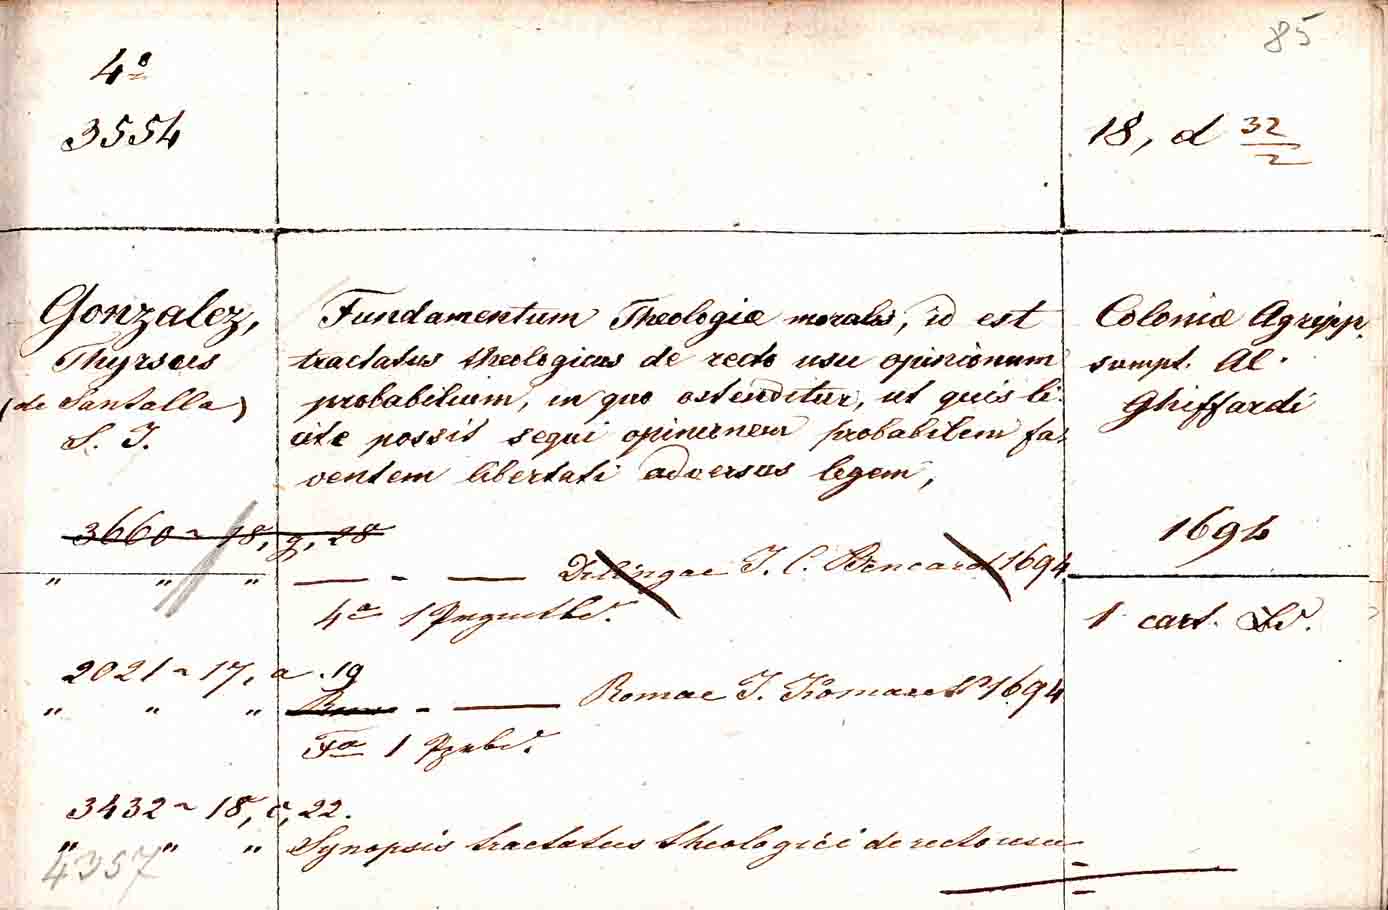 85
4º
3554
18, d 32/2
Gonzalez,
Thyrsus
(de Santalla)
S. J.
Fundamentum Theologiæ moralis, id est
tractatus theologicus de recto usu opinionum
probabilium, in quo ostenditur, ut quis li-
cite possit sequi opinionem probabilem fa-
ventem libertati adversus legem,
Coloniæ Agripp.
sumpt. Al.
Ghiffardi
1694
1 cart. Bd.
3660 ~ 18, g, 28
" " " — - — Dilingae J. C. Bencard 1694
4º 1
2021 ~ 17, a. 19
" " " - — Romae J. J. Komarek 1694
Fº 1
3432 ~ 18, c, 22.
" " " Synopsis tractatus theologici de recto usu =
4357